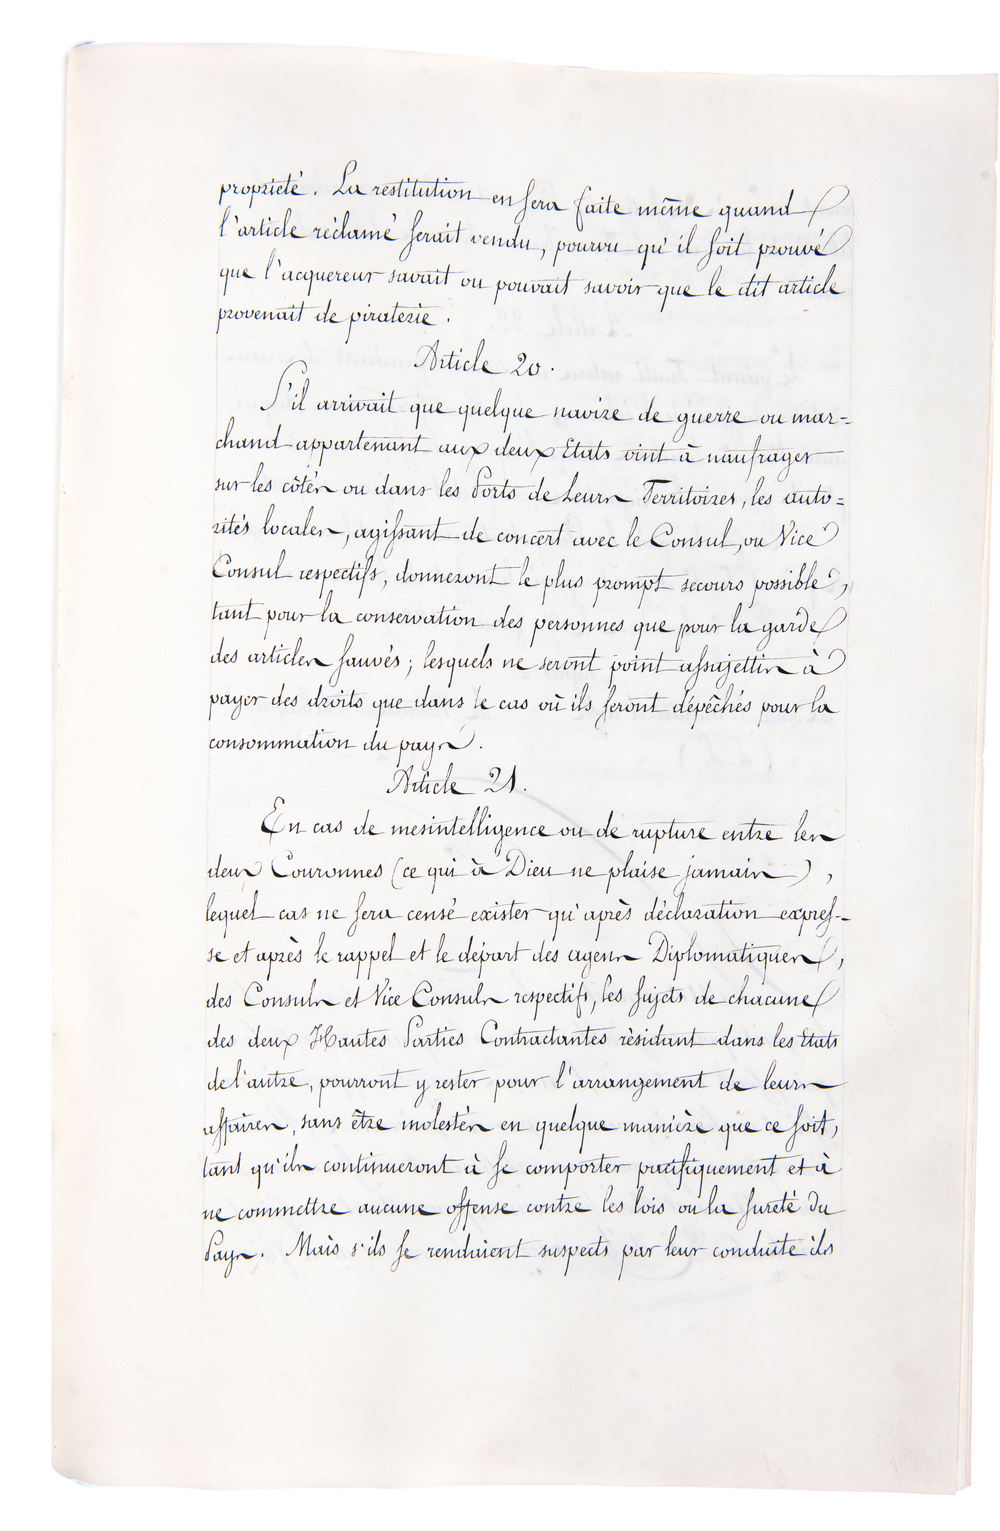 propriété. La restitution en sera faite même quand
l'article réclamé serait vendu, pourvu qu'il soit prouvé
que l'acquereur savait ou pouvait savoir que le dit article
provenait de piraterie.
Article 20.
S'il arrivait que quelque navire de guerre ou mar=
chand appartenant aux deux Etats vint à naufrager
sur les côtés ou dans les Ports de Leurs Territoires, les auto=
rités locales, agissant de concert avec le Consul, ou Vice
Consul respectifs, donneront le plus prompt secours possible,
tant pour la conservation des personnes que pour la garde
des articles sauvés; lesquels ne seront point assujettis à
payer des droits que dans le cas où ils seront dépêchés pour la
consommation du pays.
Article 21.
En cas de mesintelligence ou de rupture entre les
deux Couronnes (ce qui à Dieu ne plaise jamais),
lequel cas ne sera censé exister qu'après déclaration expres-
se et après le rappel et le départ des agens Diplomatiques,
des Consuls et Vice Consuls respectifs, les sujets de chacune
des deux Hautes Parties Contractantes résidant dans les Etats
de l'autre, pourront y rester pour l'arrangement de leurs
affaires, sans être molestés en quelque manière que ce soit,
tant qu'ils continueront à se comporter pacifiquement et à
ne commettre aucune offense contre les lois ou la sureté du
Pays. Mais s'ils se rendaient suspects par leur conduite ils